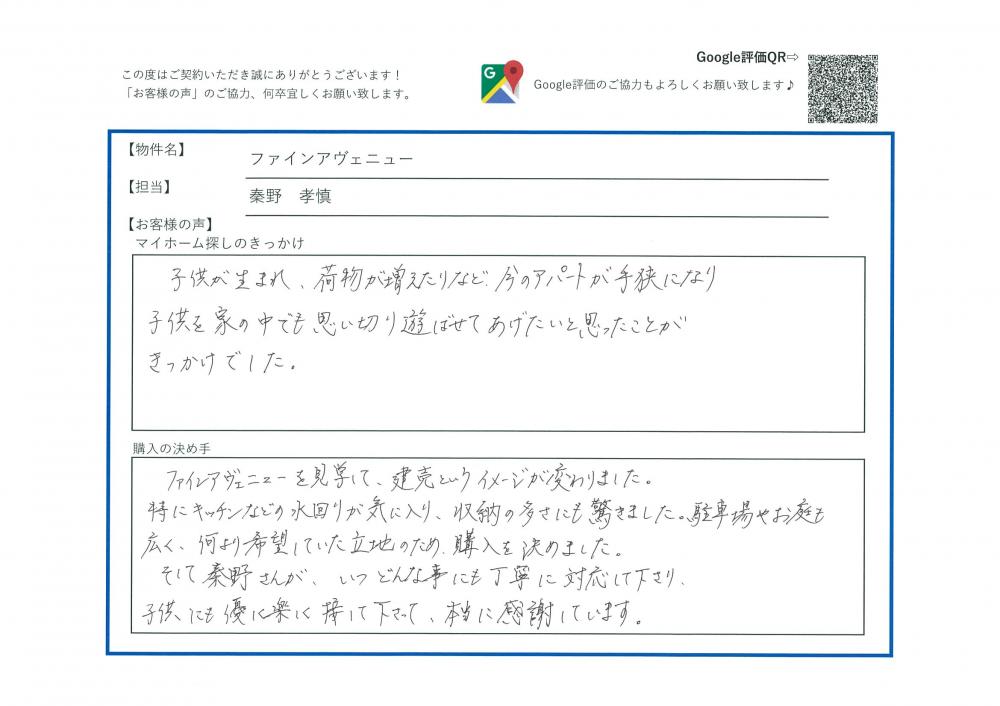 Google評価QR⇨
この度はご契約いただき誠にありがとうございます！
「お客様の声」のご協力、何卒宜しくお願い致します。
Google評価のご協力もよろしくお願い致します♪
【物件名】
ファインアヴェニュー
【担当】
秦野　孝慎
【お客様の声】
マイホーム探しのきっかけ
子供が生まれ、荷物が増えたりなど、今のアパートが手狭になり
子供を家の中でも思い切り遊ばせてあげたいと思ったことが
きっかけでした。
購入の決め手
ファインアヴェニューを見学して、建売というイメージが変わりました。
特にキッチンなどの水回りが気に入り、収納の多さにも驚きました。駐車場やお庭も
広く、何より希望していた立地のため、購入を決めました。
そして秦野さんが、いつどんな事にも丁寧に対応して下さり、
子供にも優しく楽しく接して下さって、本当に感謝しています。